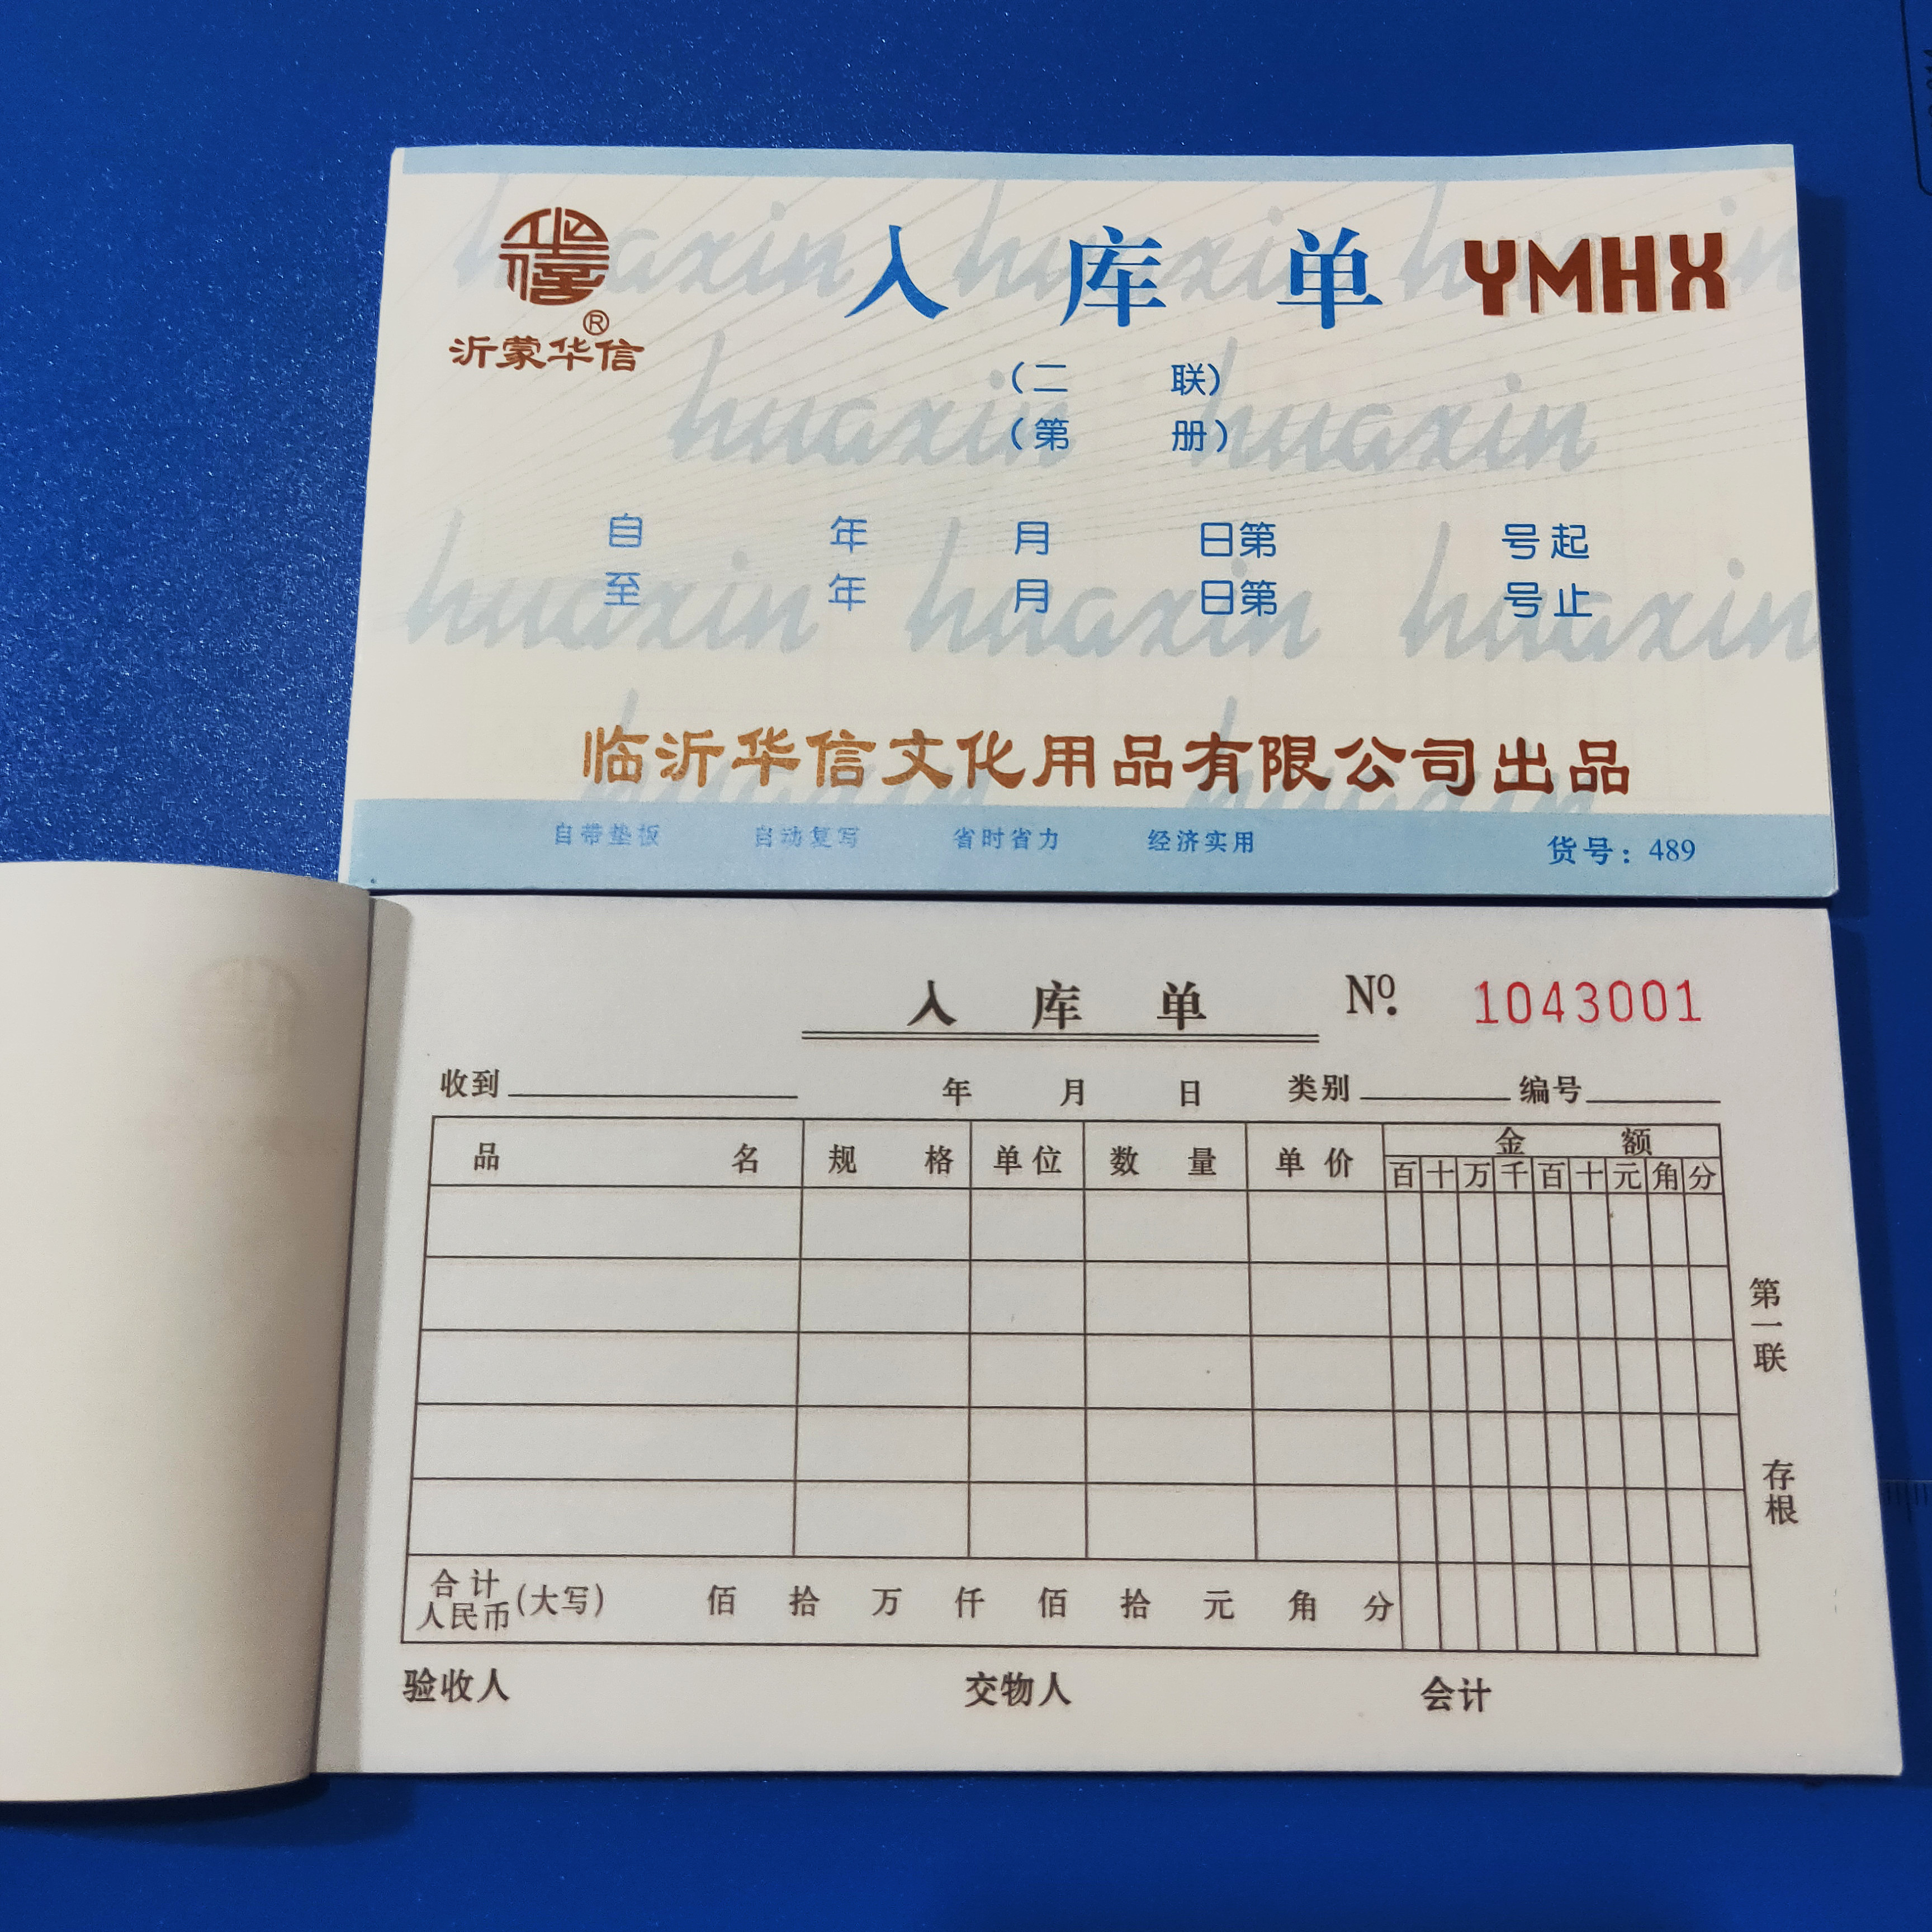 入库单 YMHX
®
沂蒙华信
(二 联)
(第 册)
自 年 月 日第 号起
至 年 月 日第 号止
huaxin huaxin huaxin
huaxin huaxin
huaxin huaxin huaxin
huaxin huaxin
临沂华信文化用品有限公司出品
自带垫板 自动复写 省时省力 经济实用 货号：489
入库单 Nº. 1043001
收到 年 月 日 类别 编号
品名 规格 单位 数量 单价 金额
百 十 万 千 百 十 元 角 分
第一联 存根
合计人民币(大写) 佰 拾 万 仟 佰 拾 元 角 分
验收人 交物人 会计